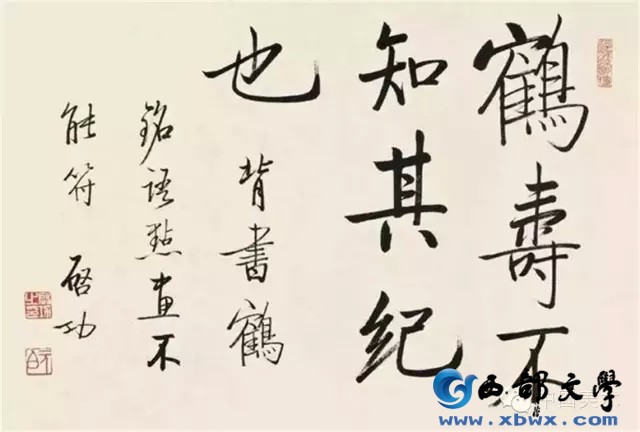 鶴壽不
知其紀
也
背書鶴
銘語點畫不
能符
啓功
西部文學
www.xbwx.com